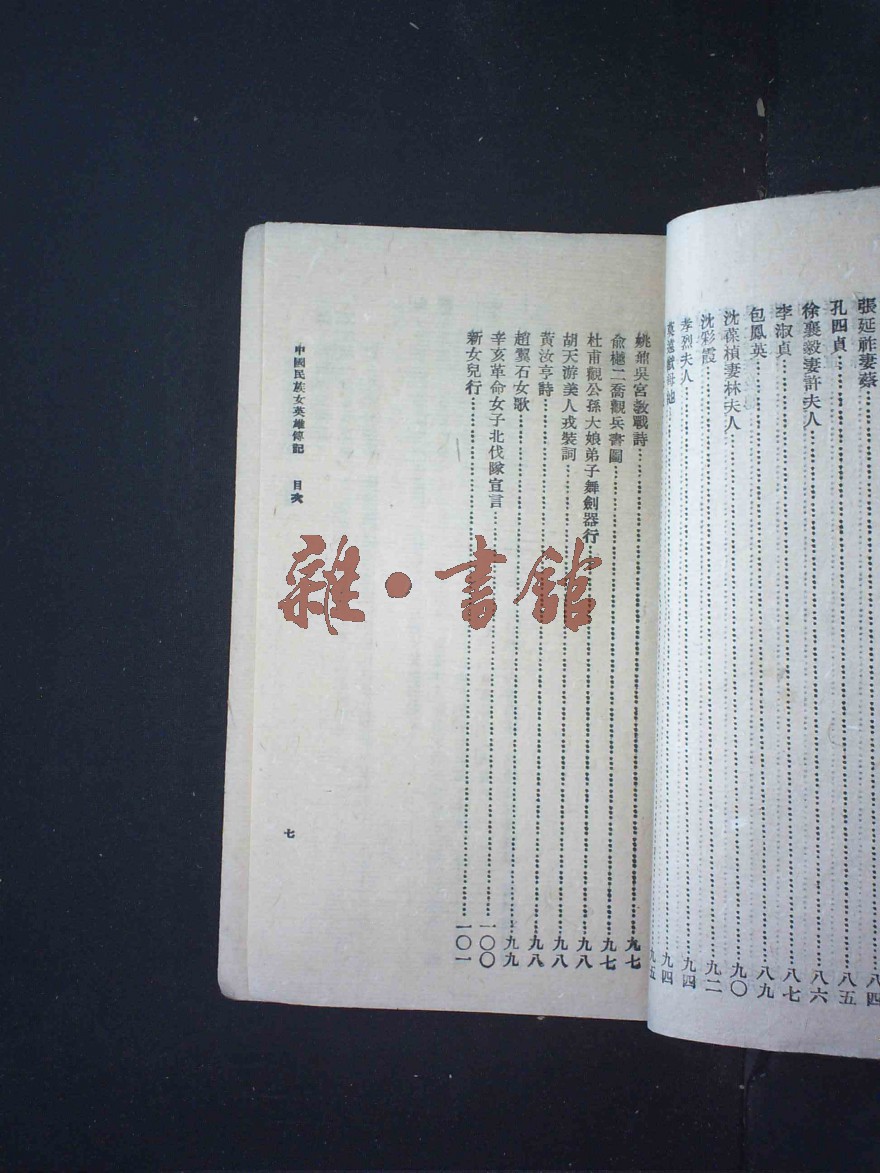 張延祚妻蔡……八四
孔四貞……八五
徐襄毅妻許夫人……八六
李淑貞……八七
包鳳英……八九
沈葆楨妻林夫人……九〇
沈彩霞……九二
孝烈夫人……九四
九四
九五
姚鼐吳宮教戰詩……九七
俞樾二喬觀兵書圖……九七
杜甫觀公孫大娘弟子舞劍器行……九八
胡天游美人戎裝詞……九八
黃汝亨詩……九八
趙翼石女歌……九九
辛亥革命女子北伐隊宣言……一〇〇
新女兒行……一〇一
中國民族女英雄傳記 目次
七
雜·書館